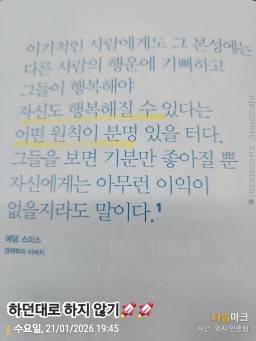 이기적인 사람에게도 그 본성에는
다른 사람의 행운에 기뻐하고
그들이 행복해야
자신도 행복해질 수 있다는
어떤 원칙이 분명 있을 터다.
그들을 보면 기분만 좋아질 뿐
자신에게는 아무런 이익이
없을지라도 말이다.¹
애덤 스미스
경제학의 아버지
하던대로 하지 않기💅💅
수요일, 21/01/2026 19:45
타임마크
시간·위치 인증됨